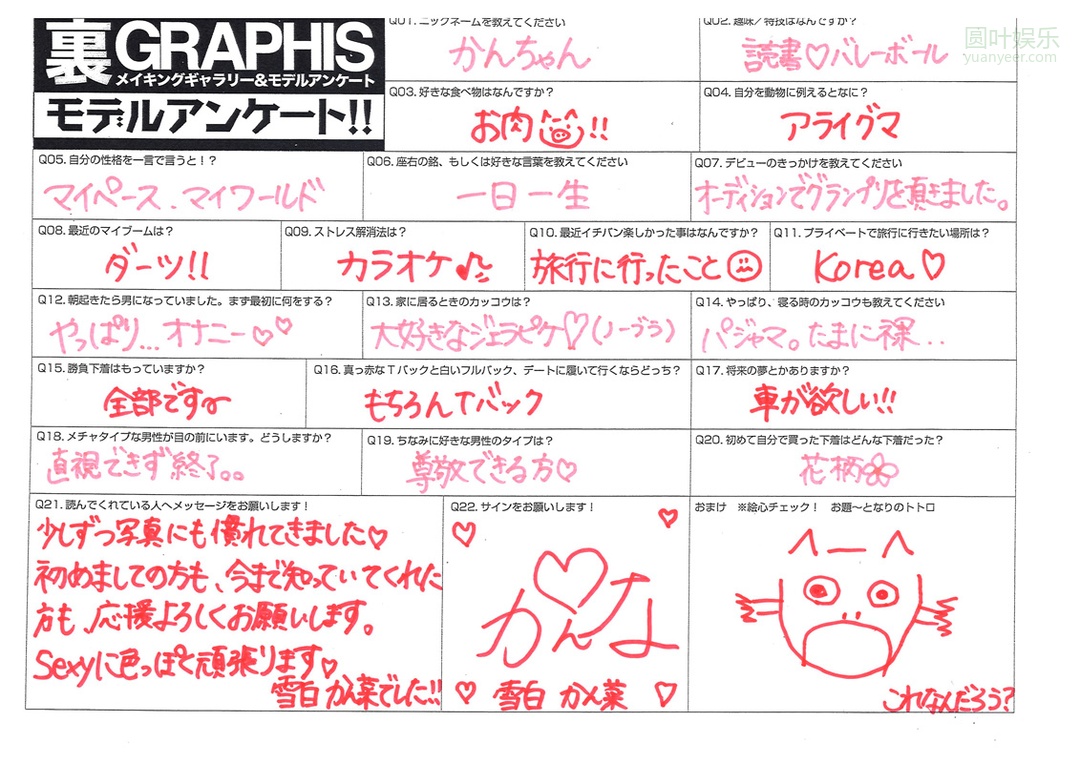 裏GRAPHIS
メイキングギャラリー&モデルアンケート
モデルアンケート!!
Q01. ニックネームを教えてください
かんちゃん
Q02. 趣味/特技はなんですか?
読書♡バレーボール
圆叶娱乐
yuanyeer.com
Q03. 好きな食べ物はなんですか?
お肉!!
Q04. 自分を動物に例えるとなに?
アライグマ
Q05. 自分の性格を一言で言うと!?
マイペース.マイワールド
Q06. 座右の銘、もしくは好きな言葉を教えてください
一日一生
Q07. デビューのきっかけを教えてください
オーディションでグランプリを頂きました。
Q08. 最近のマイブームは?
ダーツ!!
Q09. ストレス解消法は?
カラオケ♪
Q10. 最近イチバン楽しかった事はなんですか?
旅行に行ったこと
Q11. プライベートで旅行に行きたい場所は?
Korea♡
Q12. 朝起きたら男になっていました。まず最初に何をする?
やっぱり...オナニー♡♡
Q13. 家に居るときのカッコウは?
大好きなジェラピケ♡(ノーブラ)
Q14. やっぱり、寝る時のカッコウも教えてください
パジャマ。たまに裸...
Q15. 勝負下着はもっていますか?
全部です
Q16. 真っ赤なTバックと白いフルバック、デートに履いて行くならどっち?
もちろんTバック
Q17. 将来の夢とかありますか?
車が欲しい!!
Q18. メチャタイプな男性が目の前にいます。どうしますか?
直視できず終了。。
Q19. ちなみに好きな男性のタイプは?
尊敬できる方♡
Q20. 初めて自分で買った下着はどんな下着だった?
花柄
Q21. 読んでくれている人へメッセージをお願いします!
少しずつ写真にも慣れてきました♡
初めましての方も、今まで知っていてくれた
方も、応援よろしくお願いします。
Sexyに色っぽく頑張ります♡
雪白 かん菜でした!!
Q22. サインをお願いします!
かんな
雪白 かん菜
おまけ ※絵心チェック! お題〜となりのトトロ
これなんだろう?